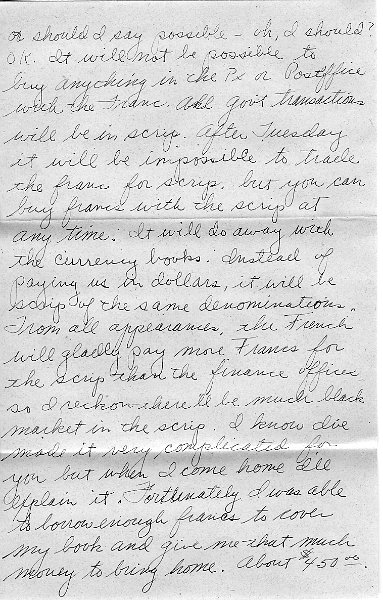 or should I say possible - oh, I should?
O.K. It will not be possible to
buy anything in the Px or Postoffice
with the Franc. All gov't transactions
will be in scrip. After Tuesday
it will be impossible to trade
the franc for scrip, but you can
buy francs with the scrip at
any time. It will do away with
the currency books. Instead of
paying us in dollars, it will be
scrip of the same denominations.
From all appearances, the French
will gladly pay more Francs for
the scrip than the finance office
so I reckon there'll be much black
market in the scrip. I know I've
made it very complicated for
you but when I come home I'll
explain it. Fortunately I was able
to borrow enough francs to cover
my book and give me that much
money to bring home. About $450.00.